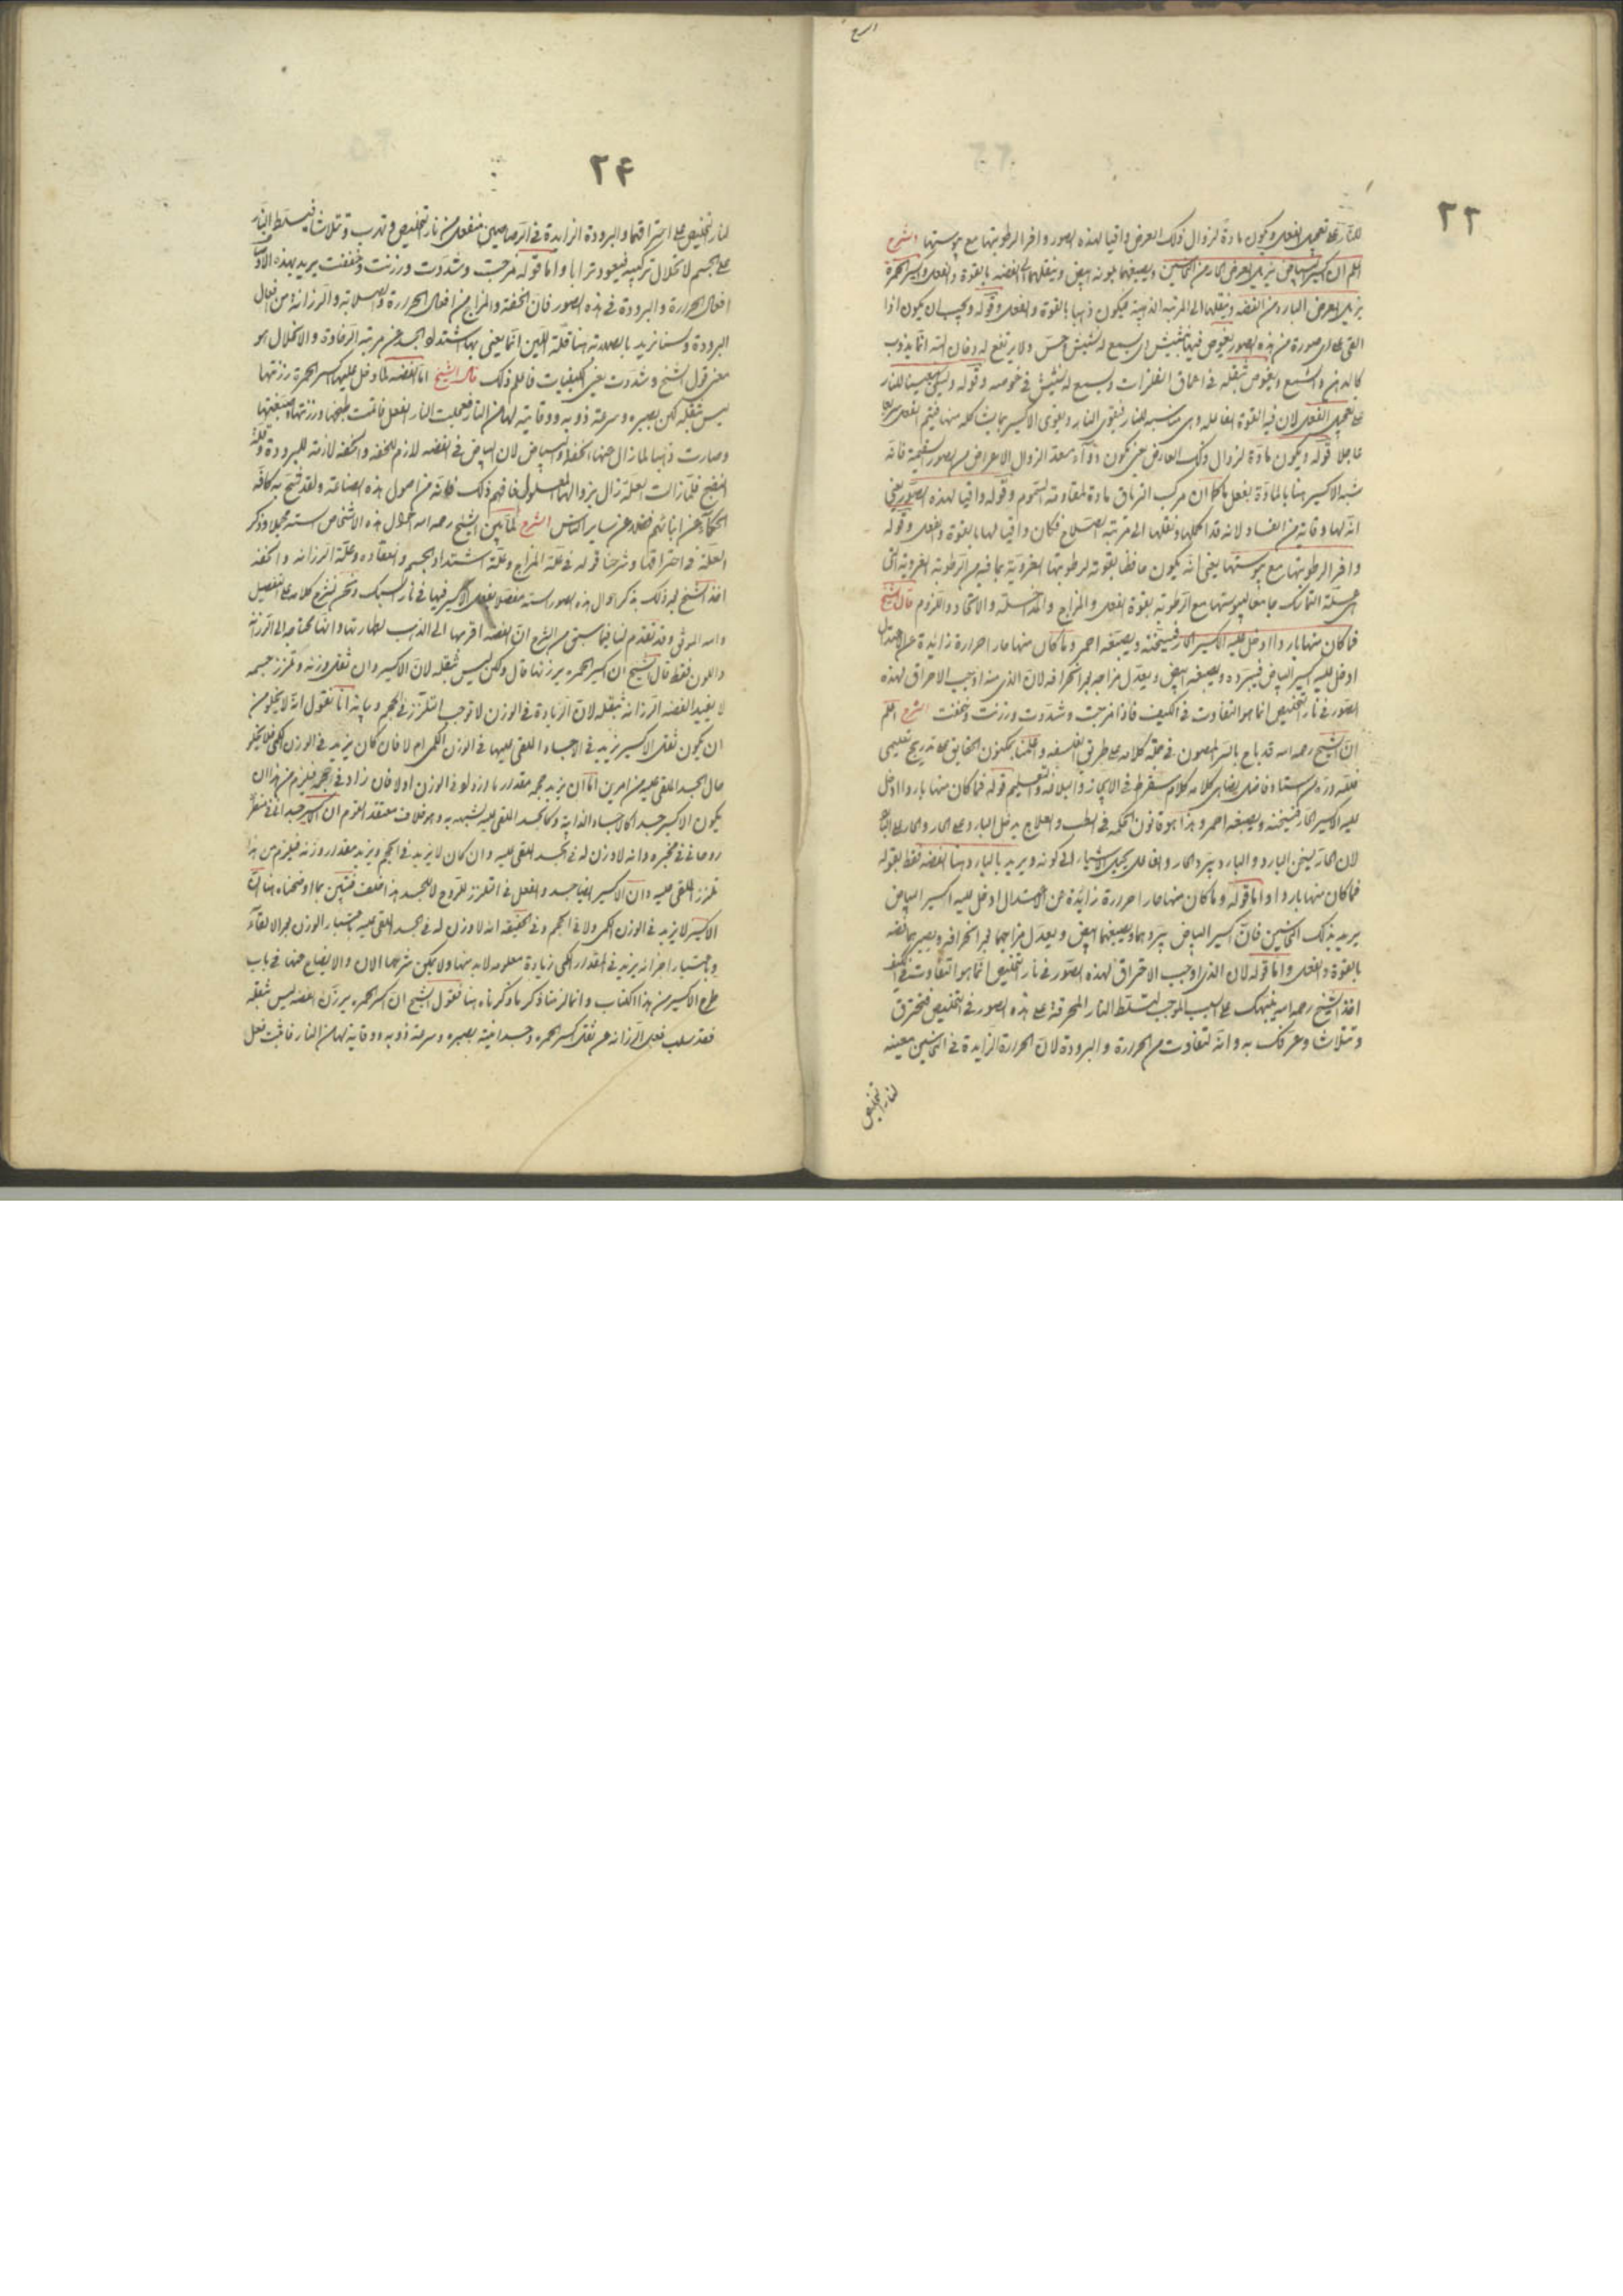 ٢٣
للنار على تعجيل الفعل ويكون مادة لزوال ذلك العرض واقيا لهذه الصور وافر الرطوبتها مع يبوستها الشرح
اعلم ان اكسير البياض يزيل العرض الحار من النحاسين ويصبغهما بلونه ابيض وينقلهما الى الفضة بالقوة والفعل واكسير الحمرة
يزيل العرض البارد من الفضة وينقلها الى المرتبة الذهبية فيكون ذهبا بالقوة والفعل وقوله ويجب ان يكون اذا
القي على اي صورة من هذه الصور يغوص فيها بنشيش اي يسمع له نشيش وحس ولا يرتفع له دخان البتة انما يذوب
كالدهن والشمع ويغوص بثقله في اعماق الفلزات ويسمع له نشيش في غوصه وقوله
على تعجيل الفعل لان فيه القوة الفاعلة وهي مناسبة للنار فتقوى النار ويقوى الاكسير بما يشاكله منها فيتم الفعل
عاجلا قوله ويكون مادة لزوال ذلك العارض يعني يكون دواء معدا لزوال الاعراض من الصور السقيمة فانه
شبه الاكسير هنا بالمادة بفعل ما كما ان مركب الترياق مادة لمقاومة السموم وقوله واقيا لهذه الصور يعني
انه لها وقاية من الفساد لانه قد اكملها ونقلها الى مرتبة الصلاح فكان واقيا لها بالقوة والفعل وقوله
وافر الرطوبتها مع يبوستها يعني انه يكون حافظا بقوته لرطوبتها الغروية بما فيه من الرطوبة الغروية التي
هي علة التماسك جامعا ليبوستها مع الرطوبة بقوة الفعل والمزاج والمداخلة والاتحاد واللزوم قال الشيخ
فما كان منها باردا ادخل عليه الاكسير الحار فسخنه ويصبغه احمر وما كان منها حارا حرارة زائدة عن الاعتدال
ادخل عليه اكسير البياض فيبرده ويصبغه ابيض ويعدل مزاجه بعد انحرافه لان الذي منه اوجب الاحراق لهذه
الصور في نار التخليص انما هو التفاوت في الكيف فاذا مزجت وشددت ورزنت وخففت الشرح اعلم
ان الشيخ رحمه الله قد باح بالسر المصون في جملة كلامه على طريق الفلسفة واعلمنا بمكنون الحقايق بتدريج تعليمي
فلله دره من استاذ فاضل يضاهي كلامه كلام سقراط في الايجاز والبلاغة والتعليم قوله فما كان منها باردا ادخل
عليه الاكسير الحار فسخنه ويصبغه احمر وهذا هو قانون الحكمة في الطب والعلاج يدخل البارد على الحار والحار على البارد
لان الحار يسخن البارد والبارد يبرد الحار والفاعل يحيل الاشياء الى كونه ويريد بالبارد هنا الفضة فقط بقوله
فما كان منها باردا واما قوله وما كان منها حارا حرارة زائدة عن الاعتدال ادخل عليه اكسير البياض
يريد بذلك النحاسين فان اكسير البياض يبردهما ويصبغهما ابيض ويعدل مزاجهما بعد انحرافه ويصيرهما فضة
بالقوة والفعل واما قوله لان الذي اوجب الاحراق لهذه الصور في نار التخليص انما هو التفاوت في الكيف
اخذ الشيخ رحمه الله ينبهك على السبب الموجب لتسلط النار المحرقة على هذه الصور في التخليص فتحترق
وتتلاشا وعرفك به وانه لتفاوت من الحرارة والبرودة لان الحرارة الزايدة في النحاسين معينة
لنار التخليص
٢۴
لنار التخليص على احتراقهما والبرودة الزايدة في الرصاصين منفعل من نار التخليص وتهرب وتتلاشا فيسلط النار
على الجسم لانحلال تركيبه فيعود ترابا واما قوله مزجت وشددت ورزنت وخففت يريد بهذه
افعال الحرارة والبرودة في هذه الصور فان الخفة والمزاج من افعال الحرارة والصلابة والرزانة من افعال
البرودة ولسنا نريد بالصلابة هنا قلة اللين انما يعني بها اشتداد الجسد عن مرتبة الرخاوة والانحلال هو
معنى قول الشيخ وشددت يعني الكيفيات فاعلم ذلك قال الشيخ اما الفضة لما دخل عليها اكسير الحمرة رزنها
ليس بثقله لكن بصبره وسرعة ذوبه ووقاية لها من النار فعجلت النار الفعل فاتمت طبخها ورزنتها وصبغتها
وصارت ذهبا لما زال عنها الخفة والبياض لان البياض في الفضة لازم للخفة والخفة لازمة للبرودة وقلة
النضج فلما زالت العلة زال بزوالها المعلول فافهم ذلك فانه من اصول هذه الصناعة ولقد شح به كافة
الحكماء عن ابنائهم فضلا عن ساير الناس الشرح لما بين الشيخ رحمه الله احوال هذه الاشخاص الستة مجملا وذكر
العلة في احتراقها وشرحنا قوله في علة المزاج وعلة اشتداد الجسم وانعقاده وعلة الرزانة والخفة
اخذ الشيخ بعد ذلك يذكر احوال هذه الصور الستة مفصلا بفعل الاكسير فيها في نار السبك ونحن نشرح كلامه على التفصيل
والله الموفق وقد تقدم لنا فيما سبق من الشرح ان الفضة اقربها الى الذهب لطهارتها وانها محتاجة الى الرزانة
واللون فقط قال الشيخ ان اكسير الحمرة يرزنها قال ولكن ليس بثقله لان الاكسير وان ثقل وزنه وتلزز جسمه
لا يفيد الفضة الرزانة بثقله لان الزيادة في الوزن لا توجب التلزز في الحجم وبيانه انا نقول انه لا يخلو من
ان يكون ثقل الاكسير يزيد في الاجساد الملقى عليها في الوزن الكمي ام لا فان كان يزيد في الوزن الكمي فلا يخلو
حال الجسد الملقى عليه من امرين اما ان يزيد حجمه مقدار ما زاد له في الوزن او لا فان زاد في حجمه فيلزم من هذا ان
يكون الاكسير جسدا كالاجساد الذايبة وكالجسد الملقى عليه يشبهه به وهو خلاف معتقد القوم ان الاكسير جسداني في منظره
روحاني في مخبره وانه لا وزن له في الجسد الملقى عليه وان كان لا يزيد في الحجم ويزيد مقدار وزنه فيلزم من هذا
تلزز الملقى عليه وان الاكسير ايضا جسد والفعل في التلزز للروح لا للجسد هذا خلف فتبين بما اوضحناه هنا ان
الاكسير لا يزيد في الوزن الكمي ولا في الحجم وفي الحقيقة انه لا وزن له في الجسد الملقى عليه باعتبار الوزن بعد الالقاء
وباعتبار اخر انه يزيد في المقدار الكمي زيادة معلومة لا بد منها ولا يمكن شرحها الان والايضاح عنها في باب
طرح الاكسير من هذا الكتاب وانما لزمنا ذكر ما ذكرناه هنا لقول الشيخ ان اكسير الحمرة يرزن الفضة ليس بثقله
فقد سلب فعل الرزانة عن ثقل اكسير الحمرة وجسدانيته بصبره وسرعة ذوبه ووقاية لها من النار